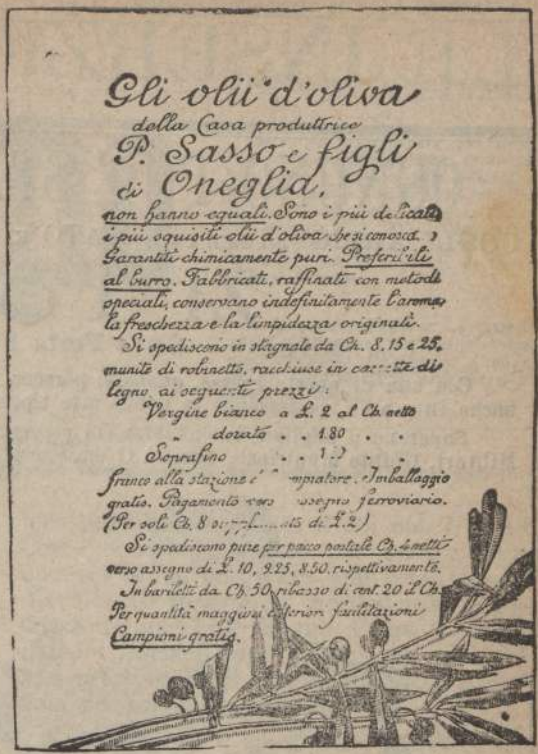 Gli olii d'oliva
della Casa produttrice
P. Sasso e figli
di Oneglia,
non hanno eguali. Sono i più delicati,
i più squisiti olii d'oliva che si conosca.
Garantiti chimicamente puri. Preferibili
al burro. Fabbricati, raffinati con metodi
speciali, conservano indefinitamente l'aroma,
la freschezza e la limpidezza originali.
Si spediscono in stagnate da Ch. 8, 15 e 25,
munite di robinetto, racchiuse in cassette di
legno, ai seguenti prezzi:
Vergine bianco a £. 2 al Ch. netto
" dorato " " 1.80 " "
Soprafino " " "
franco alla stazione Imballaggio
gratis. Pagamento verso assegno ferroviario.
(Per soli Ch. 8 supplemento di £. 2)
Si spediscono pure per pacco postale Ch. 4 netti
verso assegno di £. 10, 9.25, 8.50, rispettivamente.
In bariletti da Ch. 50, ribasso di cent. 20 il Ch.
Per quantità maggiori ulteriori facilitazioni
Campioni gratis.